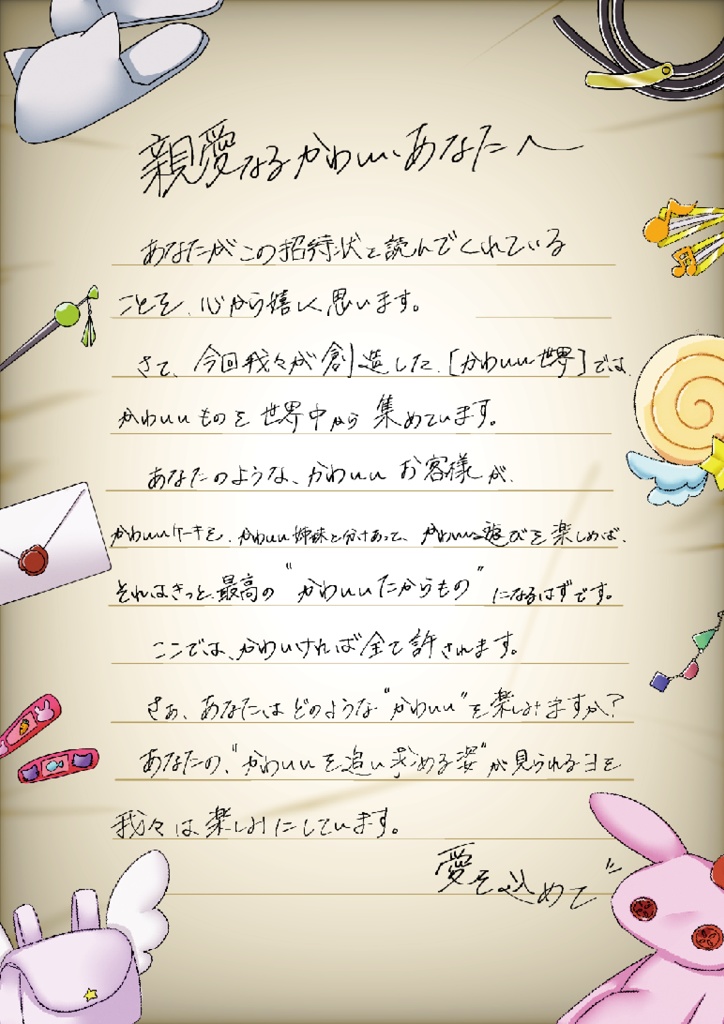 親愛なるかわいいあなたへ
あなたがこの招待状を読んでくれている
ことを、心から嬉しく思います。
さて、今回我々が創造した、[かわいい世界]では、
かわいいものを世界中から集めています。
あなたのような、かわいいお客様が、
かわいいケーキを、かわいい姉妹と分けあって、かわいい遊びを楽しめば、
それはきっと最高の"かわいいたからもの"になるはずです。
ここでは、かわいければ全て許されます。
さぁ、あなたはどのような"かわいい"を楽しみますか?
あなたの、"かわいいを追い求める姿"が見られる日を
我々は楽しみにしています。
愛を込めて